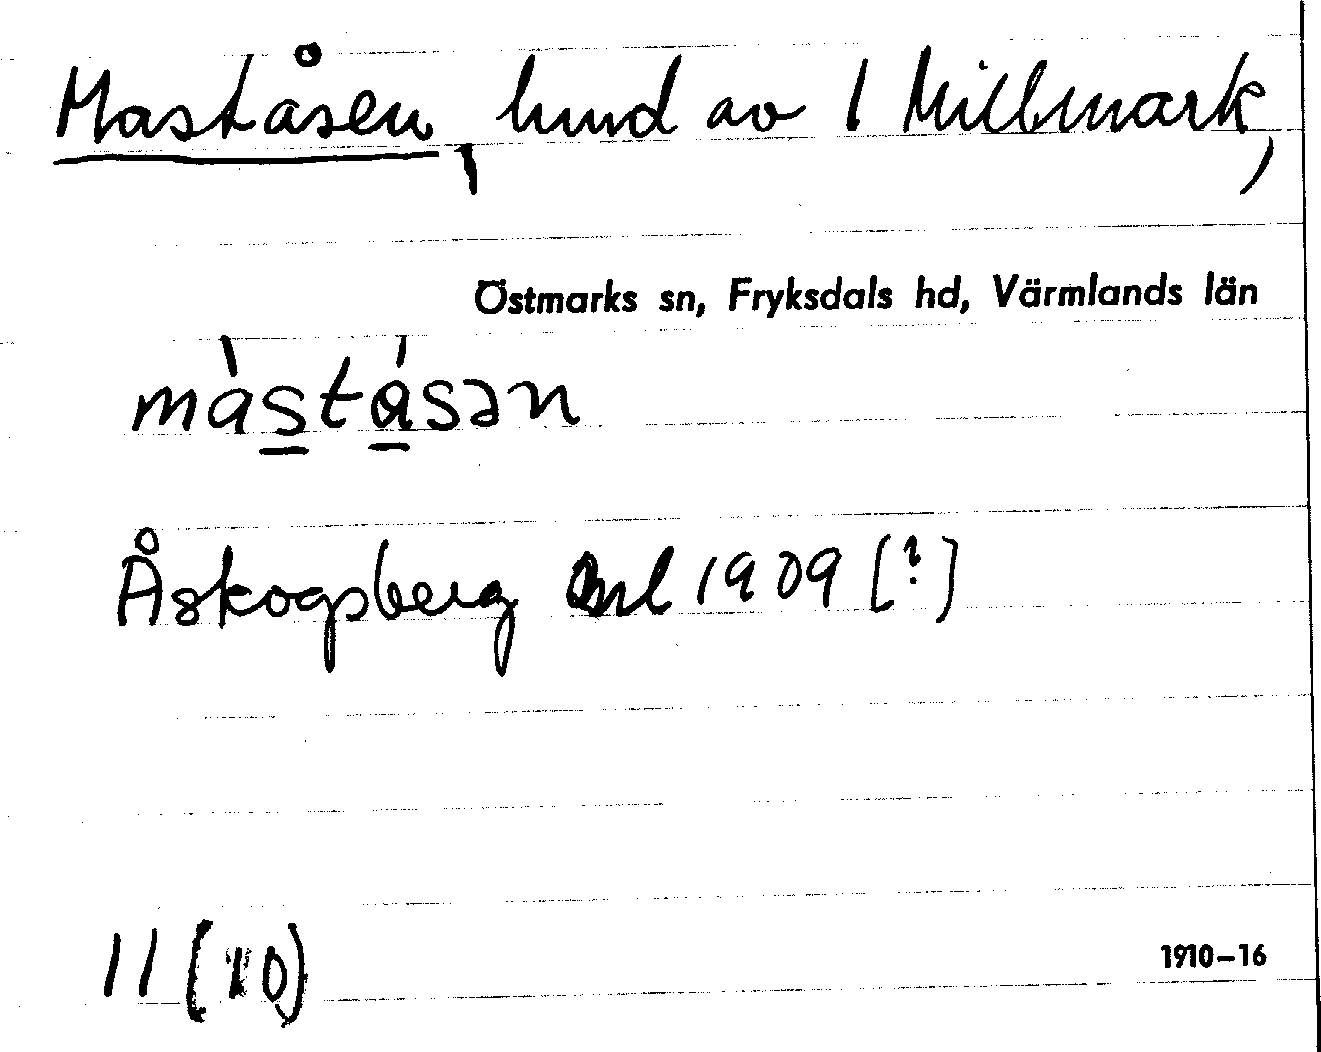 Maståsen, hmd av 1 Millmark,
Östmarks sn, Fryksdals hd, Värmlands län
màstásən
Åskogsberg Anl 1909 [?]
11 (10)
1910–16